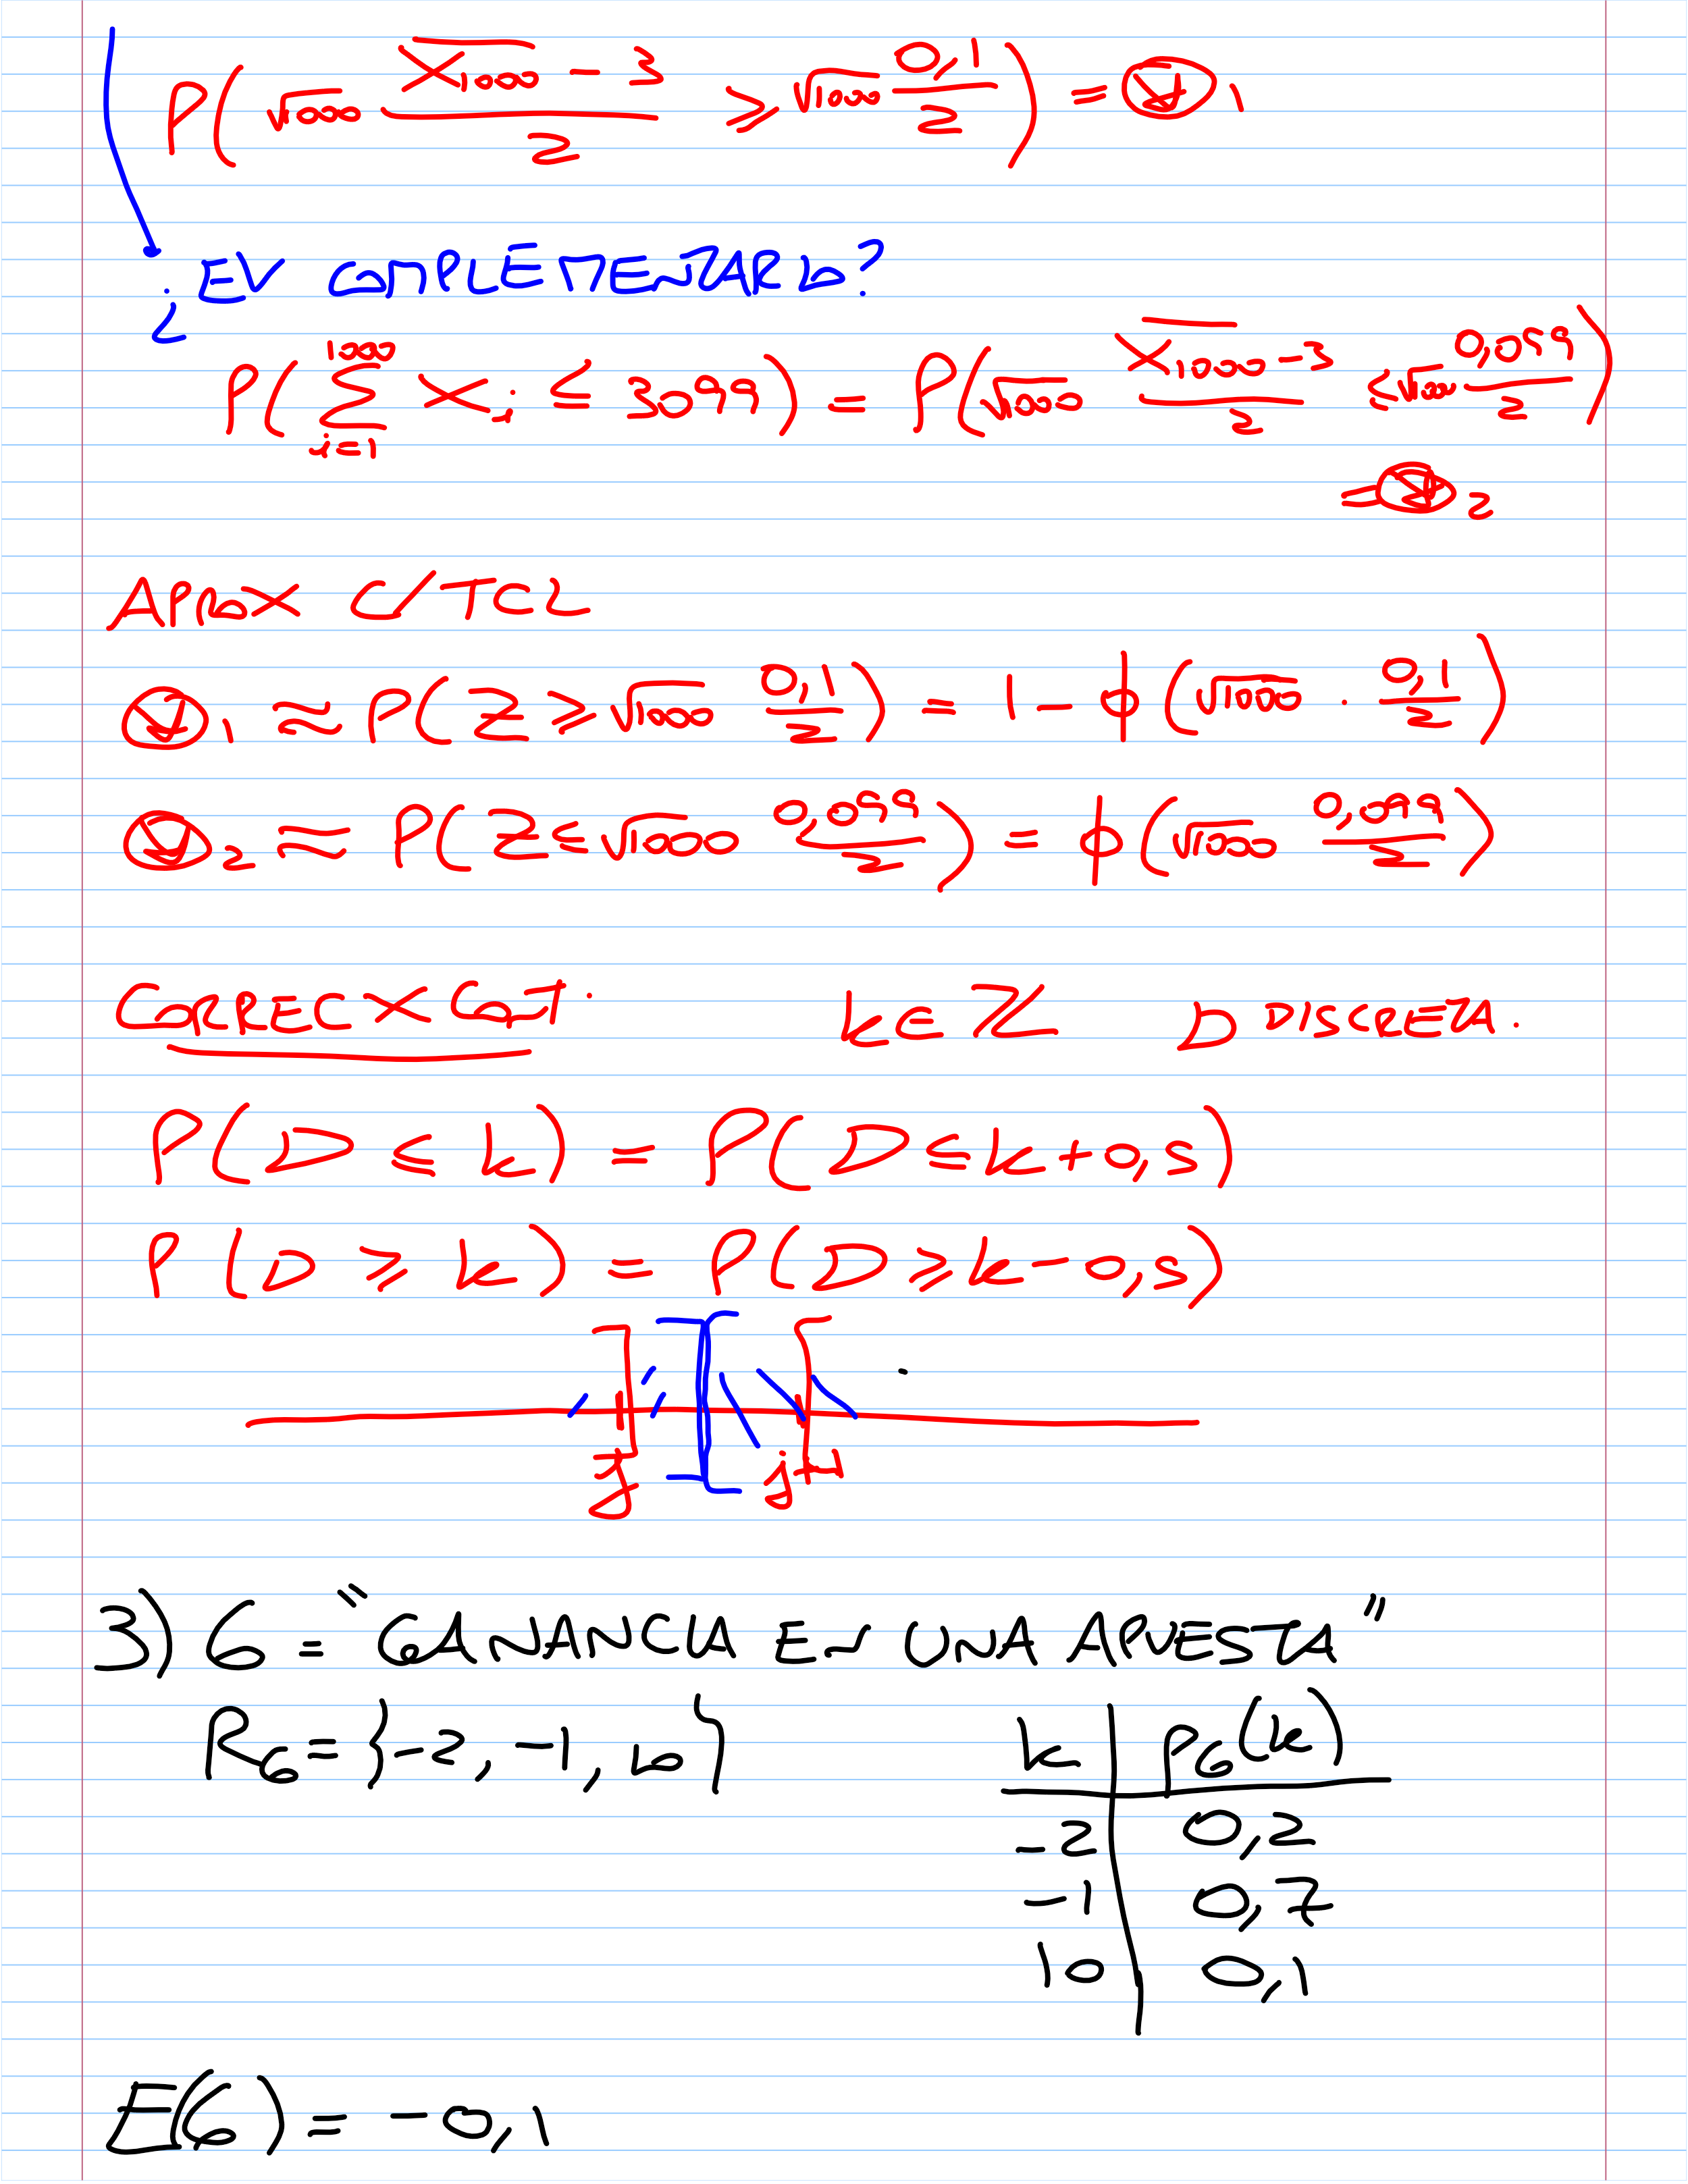 P(√1000 (X̄₁₀₀₀ − 3)/2 ≥ √1000 0,1/2) = ⊛₁
¿EV COMPLEMENTARIO?
P(∑_{i=1}^{1000} Xᵢ ≤ 3099) = P(√1000 (X̄₁₀₀₀ − 3)/2 ≤ √1000 0,099/2)
= ⊛₂
APROX C/TCL
⊛₁ ≈ P(Z ≥ √1000 0,1/2) = 1 − ϕ(√1000 · 0,1/2)
⊛₂ ≈ P(Z ≤ √1000 0,099/2) = ϕ(√1000 0,099/2)
CORREC X CONT. k ∈ ℤ D DISCRETA.
P(D ≤ k) = P(D ≤ k + 0,5)
P(D ≥ k) = P(D ≥ k − 0,5)
j j+1
3) G = "GANANCIA EN UNA APUESTA"
R_G = {−2, −1, 10} k | P_G(k)
−2 | 0,2
−1 | 0,7
10 | 0,1
E(G) = −0,1